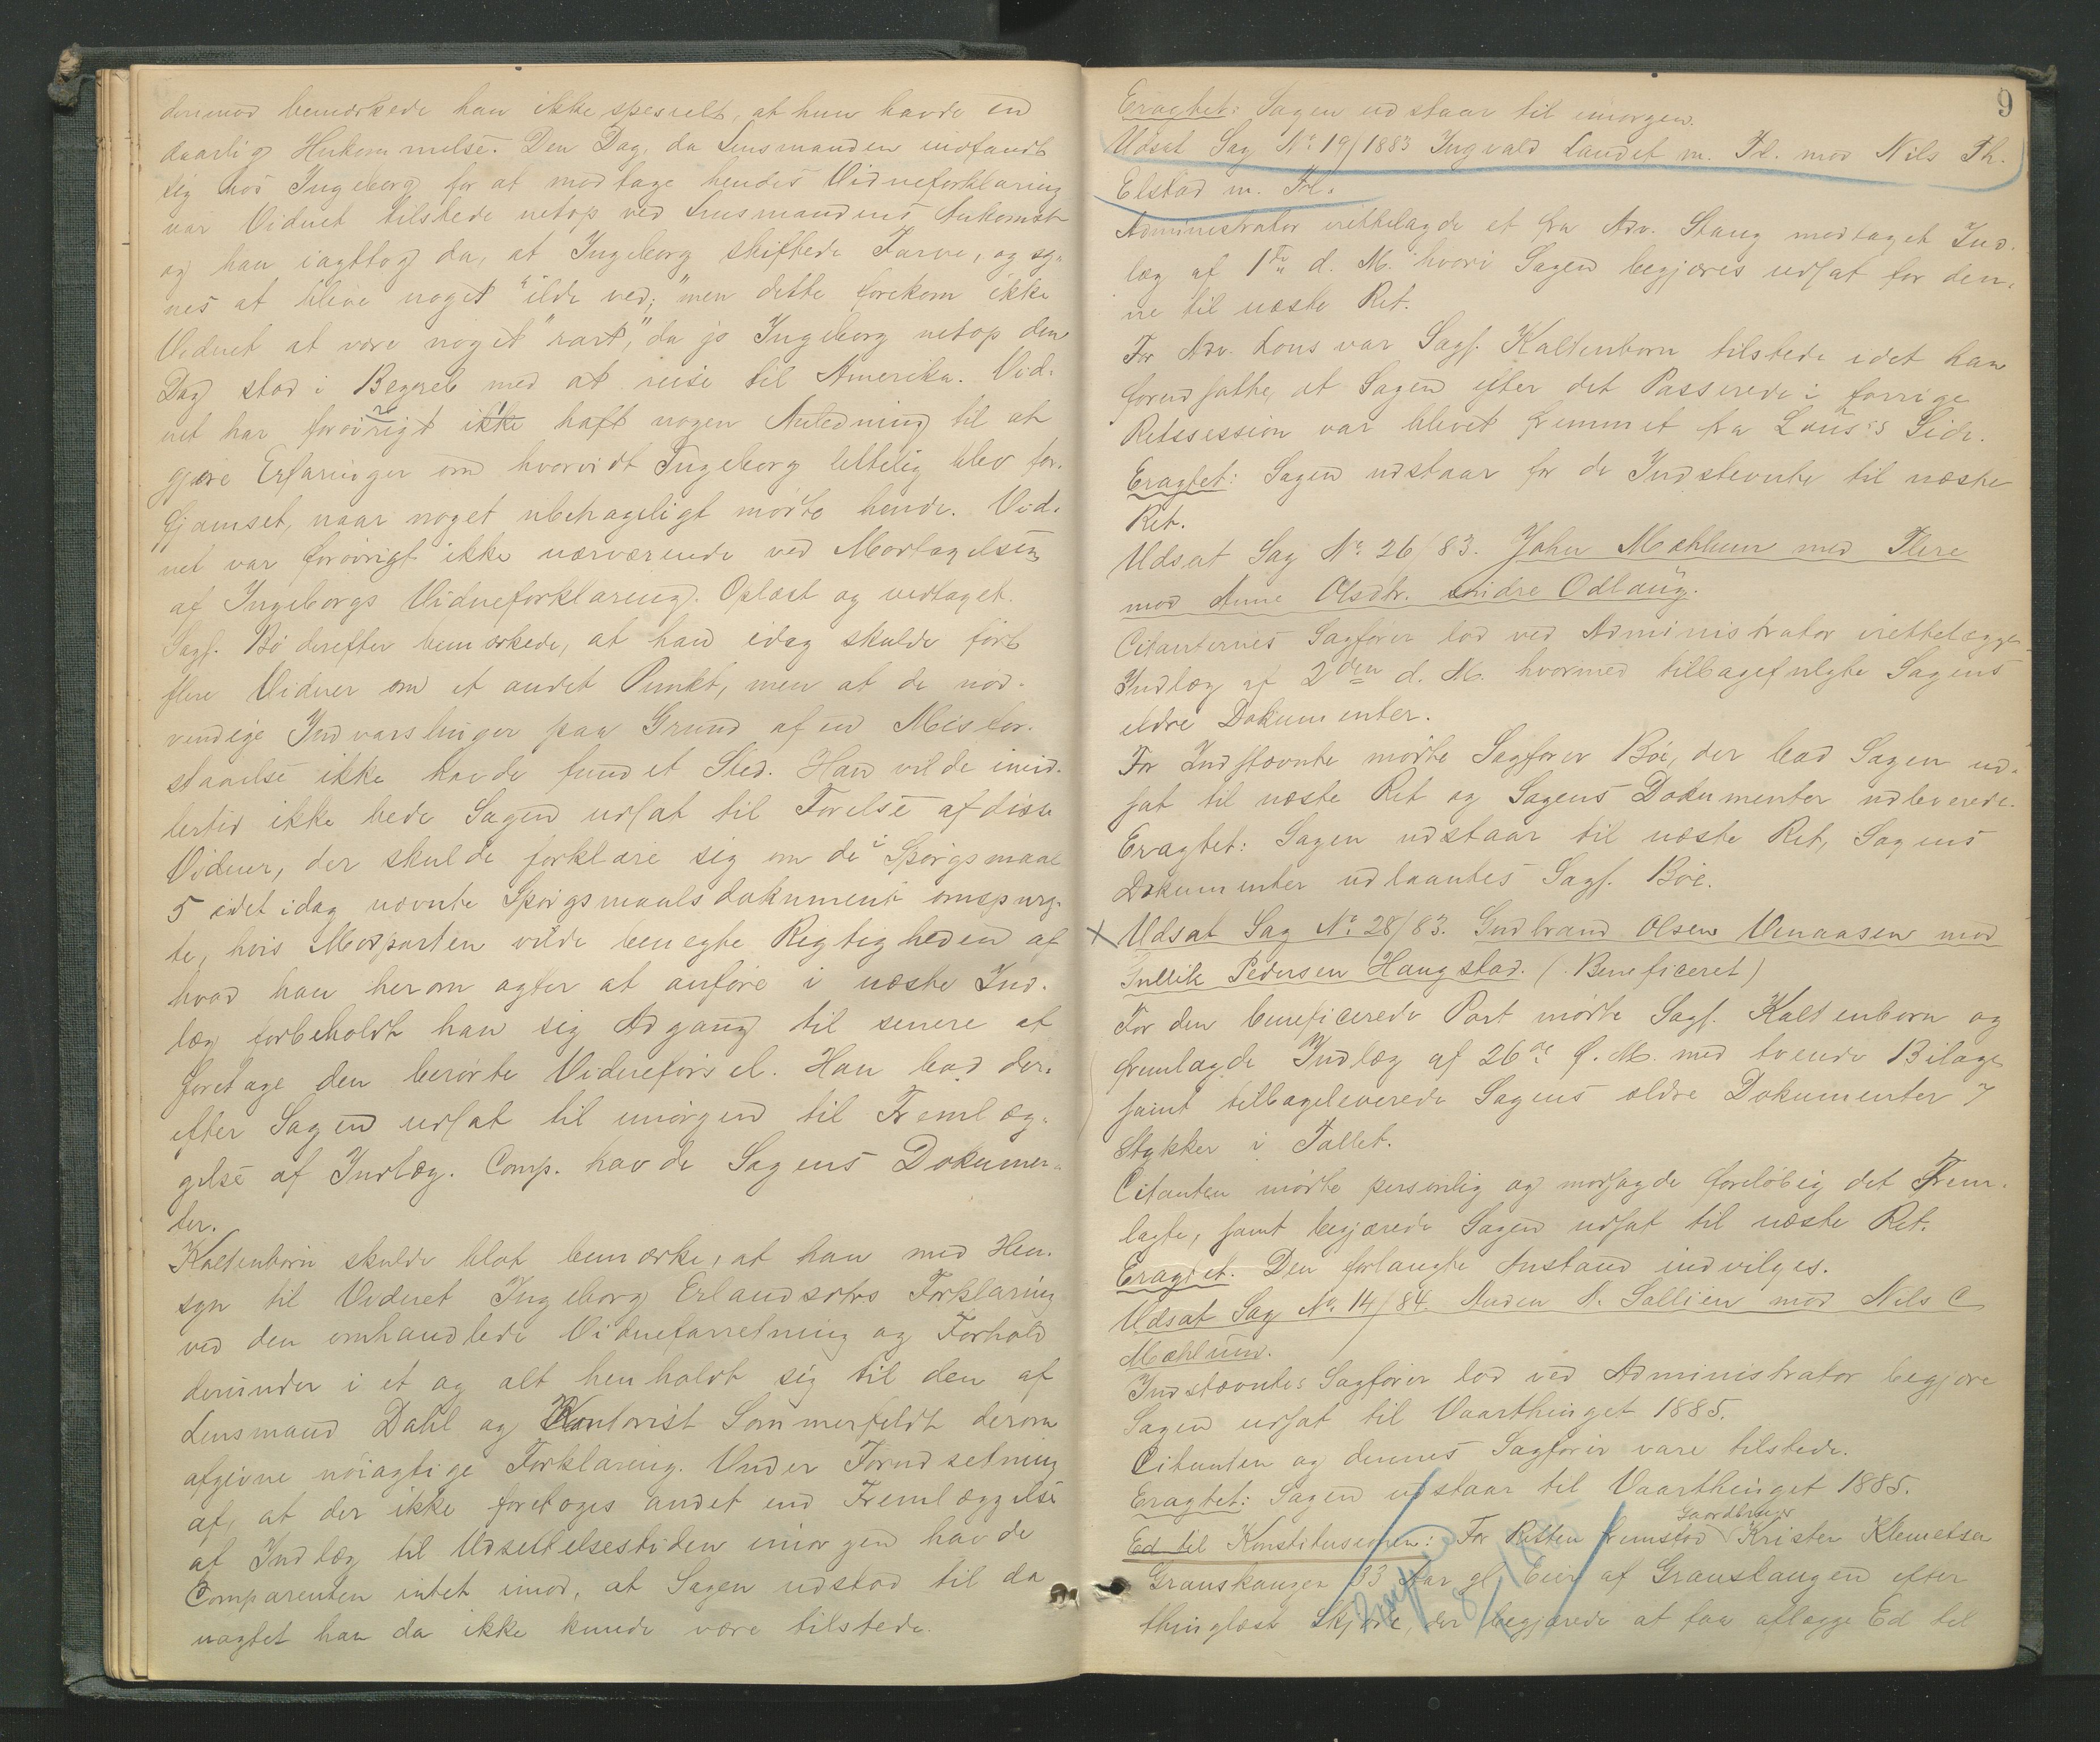 derimod bemærkede han ikke specielt, at hun havde en
daarlig Hukommelse. Den Dag, da Lensmanden indfandt
sig hos Ingeborg for at modtage hendes Vidneforklaring
var Vidnet tilstede netop ved Lensmandens Ankomst
og han iagttog da, at Ingeborg skiftede Farve, og sy-
nes at blive noget "ilde ved;" men dette forekom ikke
Vidnet at være noget "rart," da jo Ingeborg netop den
Dag stod i Begreb med at reise til Amerika. Vid-
net har forøvrigt ikke haft nogen Anledning til at
gjøre Erfaringer om hvorvidt Ingeborg lettelig blev for-
fjamset, naar noget ubehageligt mødte hende. Vid-
net var forøvrigt ikke nærværende ved Modtagelsen
af Ingeborgs Vidneforklaring. Oplæst og vedtaget.
Sagf. Bö derefter bemærkede, at han idag skulde ført
flere Vidner om et andet Punkt, men at de nød-
vendige Indvarslinger paa Grund af en Misfor-
staaelse ikke havde fundet Sted. Han vilde imid-
lertid ikke bede Sagen udsat til Førelse af disse
Vidner, der skulde forklare sig om de i Spørgsmaal
5 i det idag nævnte Spørgsmaalsdokument omspurg-
te, hvis Modparten vilde benegte Rigtigheden af
hvad han herom agter at anføre i næste Ind-
læg forbeholdt han sig Adgang til senere at
foretage den berørte Vidneførsel. Han bad der-
efter Sagen udsat til imorgen til Fremlæg-
gelse af Indlæg. Comp. havde Sagens Dokumen-
ter.
Kaltenborn skulde blot bemærke, at han med Hen-
syn til Vidnet Ingeborg Erlandsdtrs Forklaring
ved den omhandlede Vidneforretning og Forhold
derunder i et og alt henholdt sig til den af
Lensmand Dahl og Kontorist Sommerfeldt derom
afgivne nöiagtige Forklaring. Under Forudsetning
af, at der ikke foretoges andet end Fremlæggelse
af Indlæg til Udsettelsestiden imorgen havde
Comparenten intet imod, at Sagen udstod til da
uagtet han da ikke kunde være tilstede.
9
Eragtet: Sagen udstaar til imorgen.
Udsat Sag No 19/1883 Ingvald Landet m. Fl. mod Nils Th.
Elstad m. Fl.
Administrator irettelagde et fra Adv. Stang modtaget Ind-
læg af 1ste d. M. hvori Sagen begjæres udsat for den-
ne til næste Ret.
For Adv. Lous var Sagf. Kaltenborn tilstede idet han
forudsatte, at Sagen efter det Passerede i forrige
Retssession var blevet fremmet fra Lous's Side.
Eragtet: Sagen udstaar for de Indstevnte til næste
Ret.
Udsat Sag No 26/83. John Mæhlum med Flere
mod Anne Olsdtr. Søndre Odlaug.
Citanternes Sagfører lod ved Administrator irettelægge
Indlæg af 2den d. M. hvormed tilbagefulgte Sagens
eldre Dokumenter.
For Indstævnte mødte Sagfører Böe, der bad Sagen ud-
sat til næste Ret og Sagens Dokumenter udleverede.
Eragtet: Sagen udstaar til næste Ret, Sagens
Dokumenter udlaantes Sagf. Böe.
x Udsat Sag No 28/83. Gudbrand Olsen Venaasen mod
Gullik Pedersen Haugstad. (Beneficeret)
For den beneficerede Part mødte Sagf. Kaltenborn og
fremlagde Indlæg af 26de f. M. med tvende Bilage
samt tilbageleverede Sagens ældre Dokumenter 7
Stykker i Tallet.
Citanten mødte personlig og modsagde foreløbig det Frem-
lagte, samt begjærede Sagen udsat til næste Ret.
Eragtet. Den forlangte Anstand indvilges.
Udsat Sag No 14/84. Auden N. Sallien mod Nils C
Mæhlum.
Indstævntes Sagfører lod ved Administrator begjære
Sagen udsat til Vaarthinget 1885.
Citanten og dennes Sagfører vare tilstede.
Eragtet: Sagen udstaar til Vaarthinget 1885.
Gaardbruger
Ed til Konstitusionen: For Retten fremstod Kristen Klemetsen
33 Aar gl. Eier af efter
thinglæst Skjøde, der begjærede at faa aflægge Ed til